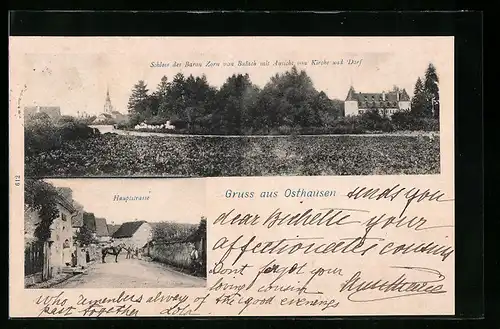 Schloss des Baron Zorn von Bulach mit Ansicht von Kirche und Dorf
612
Hauptstrasse
Gruss aus Osthausen sends you
dear Bichelle your
affectionate cousin
Dont forget your
loving cousin
Who remembers always of the good evenings
past together Lola